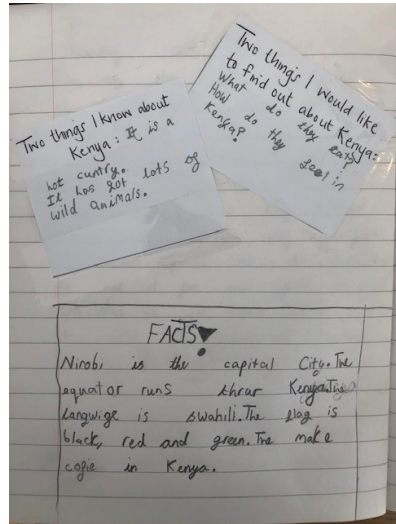 Two things I know about
Kenya: It is a
hot cuntry.
It has got lots of
wild animals.
Two things I would like
to find out about Kenya:
What do they eat?
How do they feel in
Kenya?
FACTS!
Nirobi is the capital City. The
equator runs thrar Kenya. The
langwige is swahili. The flag is
black, red and green. The make
cofie in Kenya.